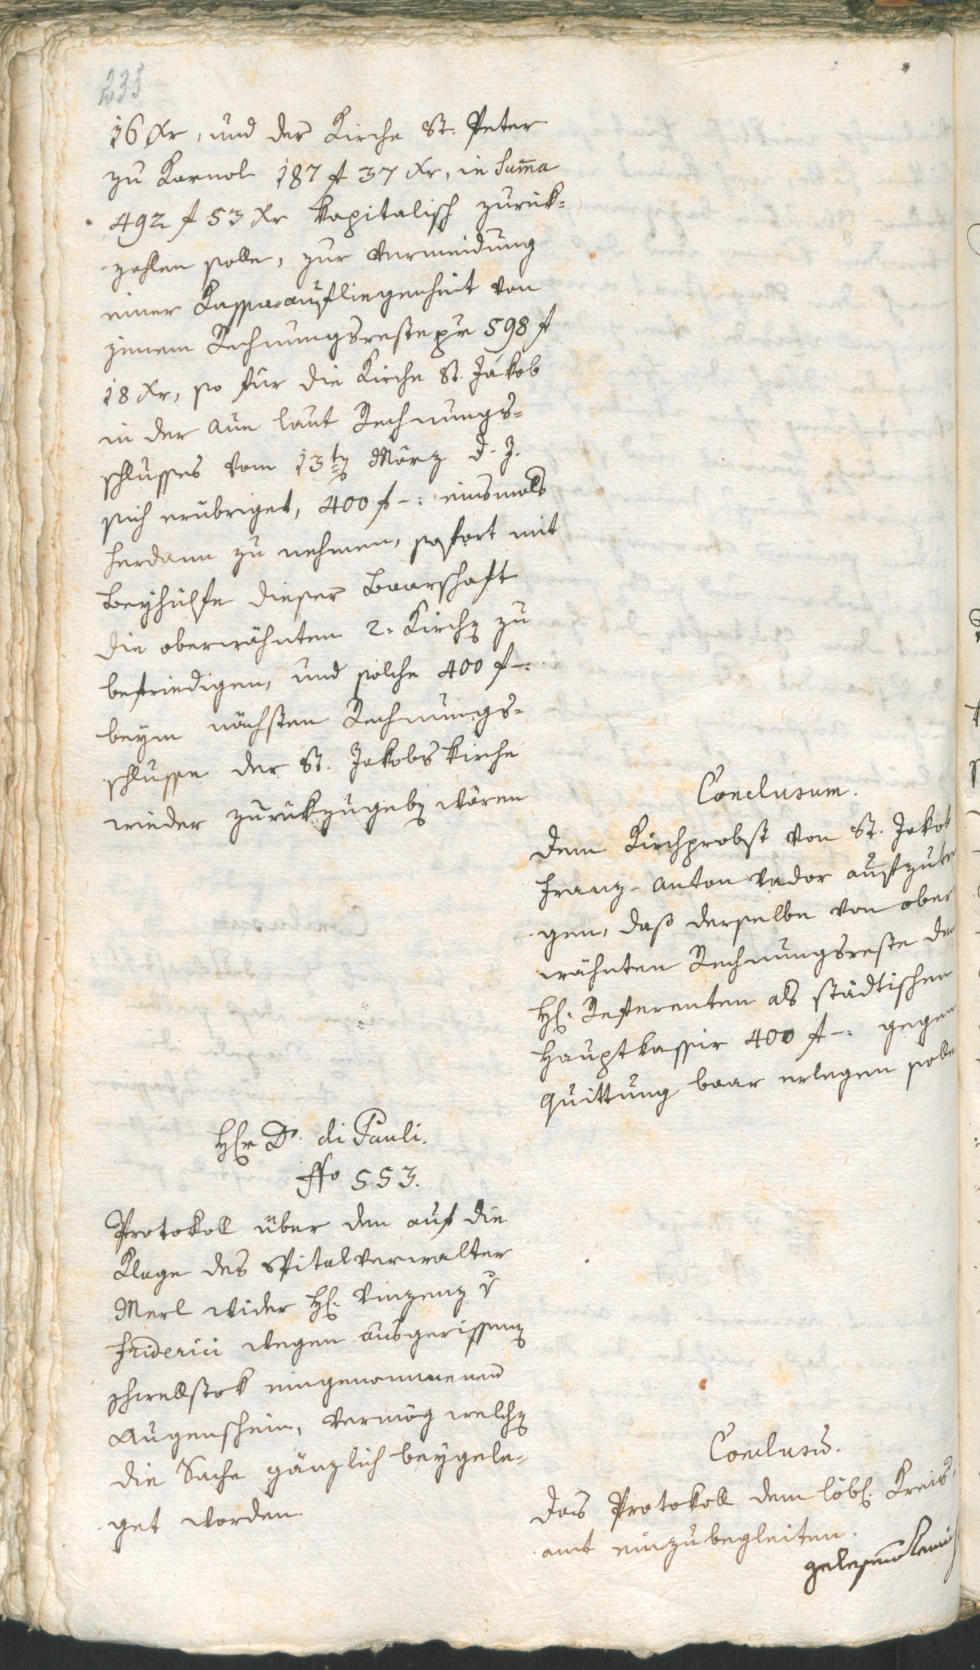 235
16 xr, und der Kirche St. Peter
zu Karnol 187 f 37 xr, in Suma
492 f 53 xr kapitalisch zurük-
zahlen solle, zur Vermeidung
einer Kassaraufliegenheit von
jenem Rechnungsreste pr 598 f
18 xr, so für die Kirche St. Jakob
in der Aue laut Rechnungs-
schlusses vom 13ten März d. J.
sich erübriget, 400 f -: einsmals
herdann zu nehmen, sofort mit
Beyhülfe dieser Baarschaft
die oberwähnten 2. Kirchen zu
befriedigen, und solche 400 f -:
beym nächsten Rechnungs-
schlusse der St. Jakobskirche
wieder zurükzugeben wären
Conclusum.
Dem Kirchprobst von St. Jakob
Franz Anton Vador aufzutra
gen, daß derselbe von ober
wähnten Rechnungsreste dem
H: Referenten als städtischen
Hauptkassir 400 f -: gegen
Quittung baar erlegen solle
Hr Dr. di Pauli.
ffo 553.
Protokoll über den auf die
Klage des Spitalverwalter
Merl wider H: Vinzenz v
Friderici wegen ausgerissenen
Schwellstok eingenommenen
Augenschein, vermög welchen
die Sache gänzlich beygele-
get worden.
Conclusum.
Das Protokoll dem löbl. Kreis-
amt einzubegleiten.